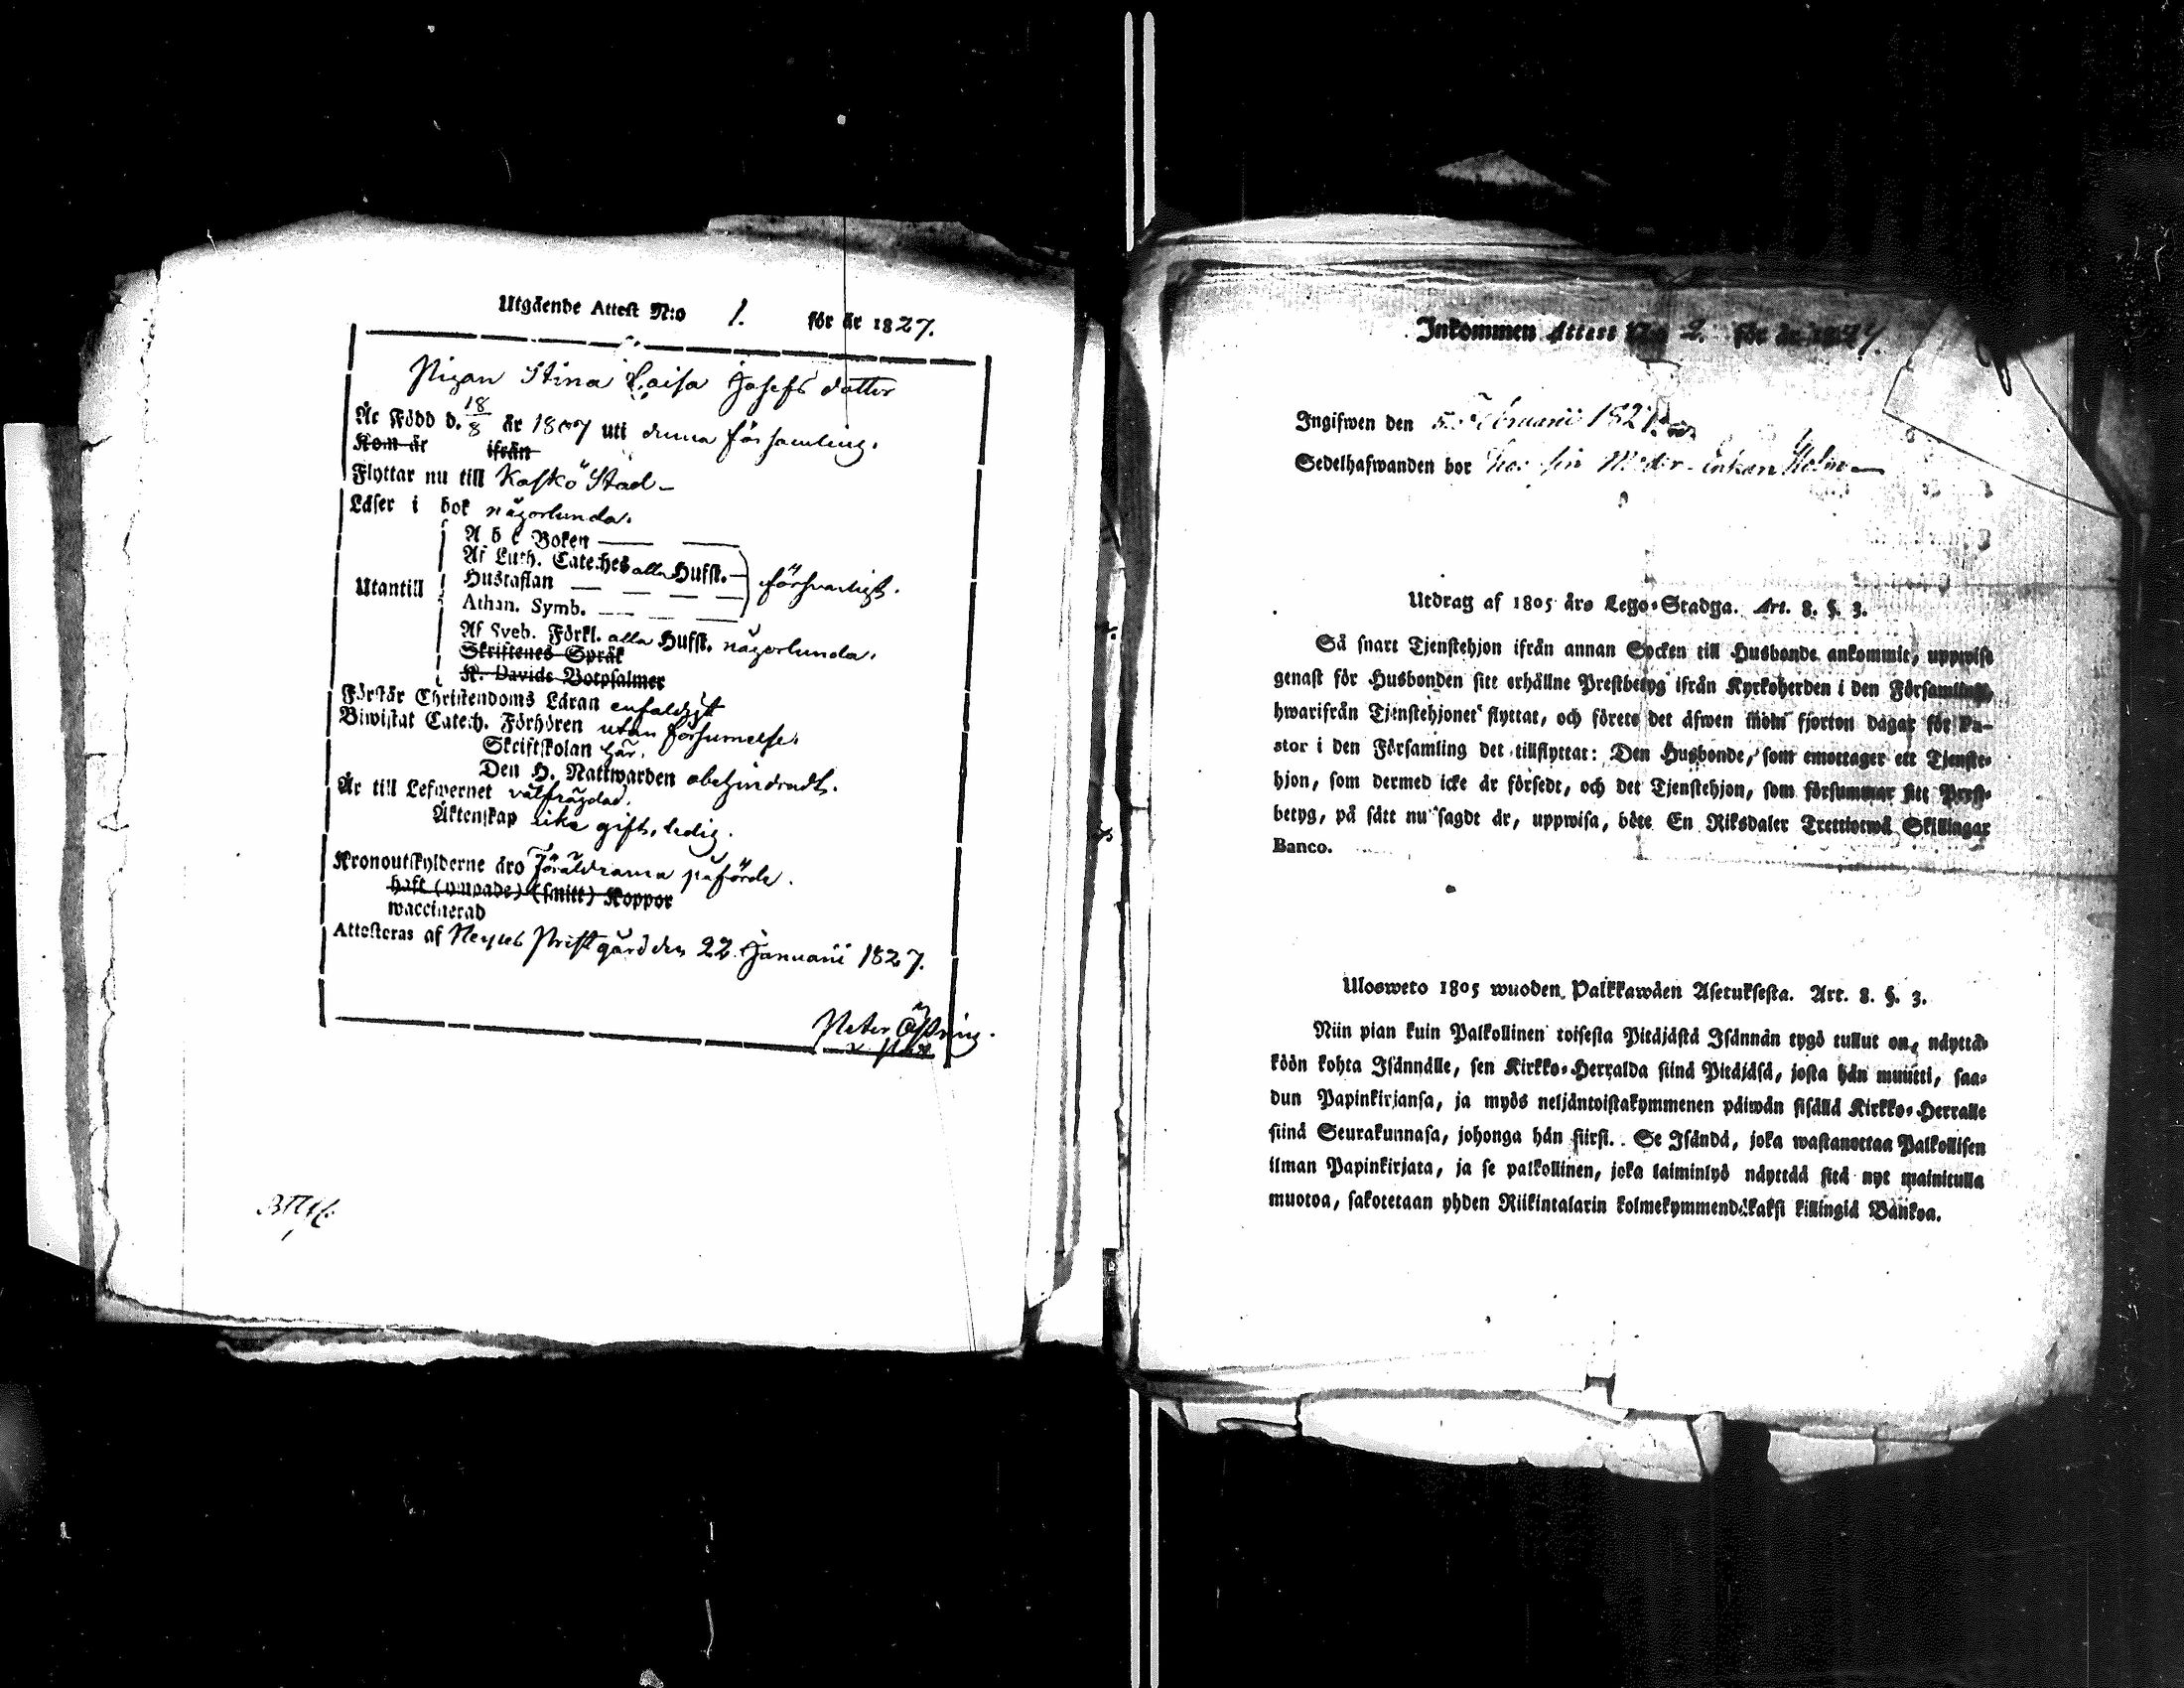 Utgående Attest N:o 1. för år 1827.
Pigan Stina Caisa Josefs dotter
Är Född d. 18/8 år 1807 uti denna församling.
Kom år ifrån
Flyttar nu till Kaskö Stad
Läser i bok någorlunda.
A b c Boken
Af Luth. Cateches alla Hufst.
Utantill Hustaflan försvarligt.
Athan. Symb.
Af Sveb. Förkl. alla Hufst. någorlunda.
Skriftenes Språk
K. Davids Botpsalmer
Förstår Christendoms Läran enfaldigt
Biwistat Catech. Förhören utan försumelse.
Skriftskolan här.
Den H. Nattwarden obehindradt.
Är till Lefwernet välfrägdad.
Äktenskap icke gift, ledig.
Kronoutskylderne äro Föräldrarna påförde.
haft (ympade) (smitt) Koppor
waccinerad
Attesteras af Nerpes Prestgård den 22 Januarii 1827.
Peter
Inkommen Attest N:o 2. för år 1827.
Ingifwen den 5 Februarii 1827.
Sedelhafwanden bor hos sin Moder Enkan Holm
Utdrag af 1805 års Lego-Stadga. Art. 8. §. 3.
Så snart Tjenstehjon ifrån annan Socken till Husbonde ankommit, uppwise
genast för Husbonden sitt erhållne Prestbetyg ifrån Kyrkoherden i den Församling,
hwarifrån Tjenstehjonet flyttat, och förete det äfwen inom fjorton dagar för Pa-
stor i den Församling det tillflyttat: Den Husbonde, som emottager ett Tjenste-
hjon, som dermed icke är försedt, och det Tjenstehjon, som försummar sitt Prest-
betyg, på sätt nu sagdt är, uppwisa, böte En Riksdaler Trettiotwå Skillingar
Banco.
Ulosweto 1805 wuoden Palkkawäen Asetuksesta. Art. 8. §. 3.
Niin pian kuin Palkollinen toisesta Pitäjästä Isännän tygö tullut on, näyttä-
köön kohta Isännälle, sen Kirkko-Herralda siinä Pitäjäsä, josta hän muutti, saa-
dun Papinkirjansa, ja myös neljäntoistakymmenen päiwän sisällä Kirkko-Herralle
siinä Seurakunnasa, johonga hän siirsi. Se Isändä, joka wastanottaa Palkollisen
ilman Papinkirjata, ja se palkollinen, joka laiminlyö näyttää sitä nyt mainitulla
muotoa, sakotetaan yhden Riikintalarin kolmekymmendäkaksi killingiä Bankoa.